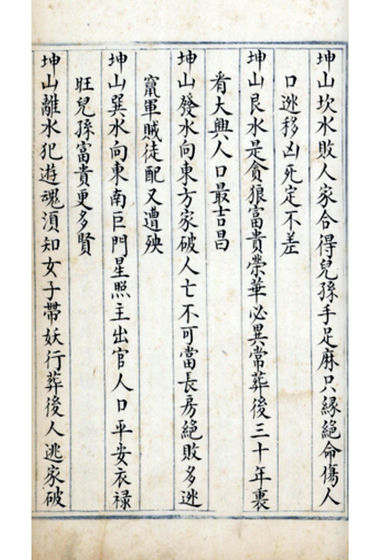 坤山坎水敗人家合得兒孫手足麻只緣絶命傷人
口逃移凶死定不差
坤山艮水是貪狼富貴榮華必異常葬後三十年裏
看大興人口最吉昌
坤山發水向東方家破人亡不可當長房絶敗多逃
竄軍賊徒配又遭殃
坤山巽水向東南巨門星照主出官人口平安衣祿
旺兒孫富貴更多賢
坤山離水犯遊魂須知女子帶妖行葬後人逃家破